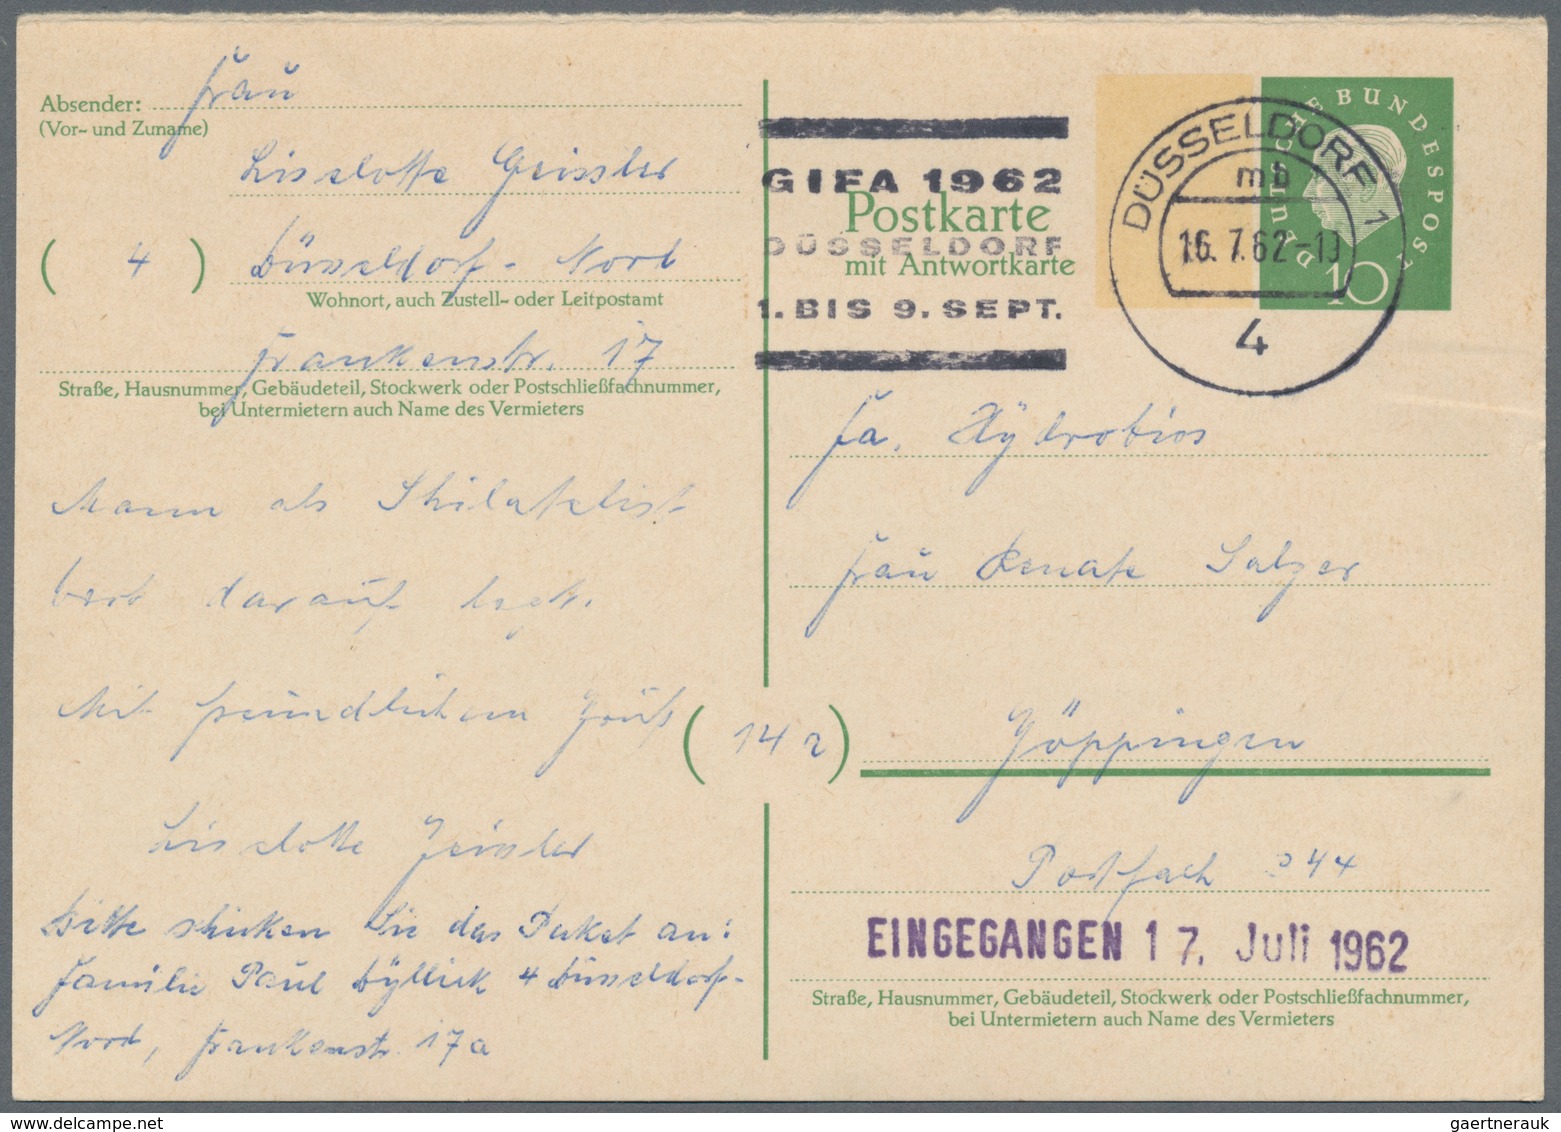 Absender: Frau
(Vor- und Zuname)
Lieselotte Geissler
( 4 ) Düsseldorf-Nord
Wohnort, auch Zustell- oder Leitpostamt
Frankenstr. 17
Straße, Hausnummer, Gebäudeteil, Stockwerk oder Postschließfachnummer,
bei Untermietern auch Name des Vermieters
Mann als
darauf
Mit freundlichem Gruß
Lieselotte Geissler
Bitte schicken Sie das Paket an:
Familie Paul 4 Düsseldorf-
Nord, Frankenstr. 17a
GIFA 1962
DÜSSELDORF
1. BIS 9. SEPT.
Postkarte
mit Antwortkarte
DÜSSELDORF 1
mb
16.7.62-19
4
DEUTSCHE BUNDESPOST
10
Fa. Hydrobios
Frau Renate Salzer
(14a) Göppingen
Postfach 344
EINGEGANGEN 17. Juli 1962
Straße, Hausnummer, Gebäudeteil, Stockwerk oder Postschließfachnummer,
bei Untermietern auch Name des Vermieters
gaertnerauk